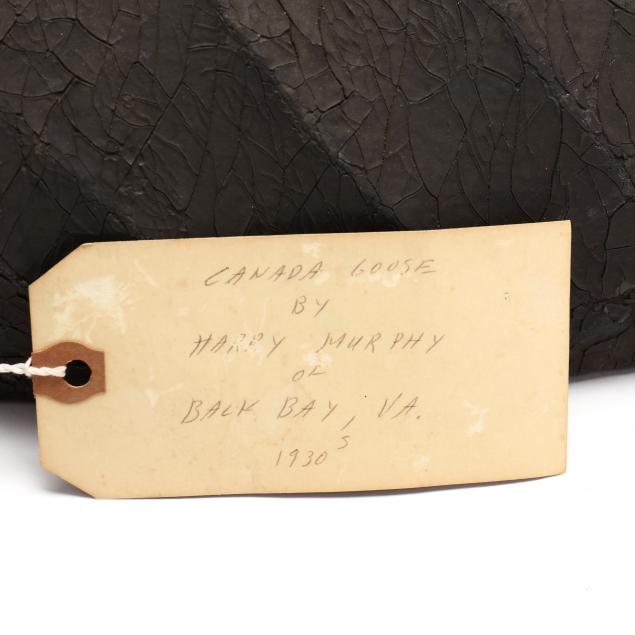 CANADA GOOSE
BY
HARRY MURPHY
OF
BACK BAY, VA.
1930S